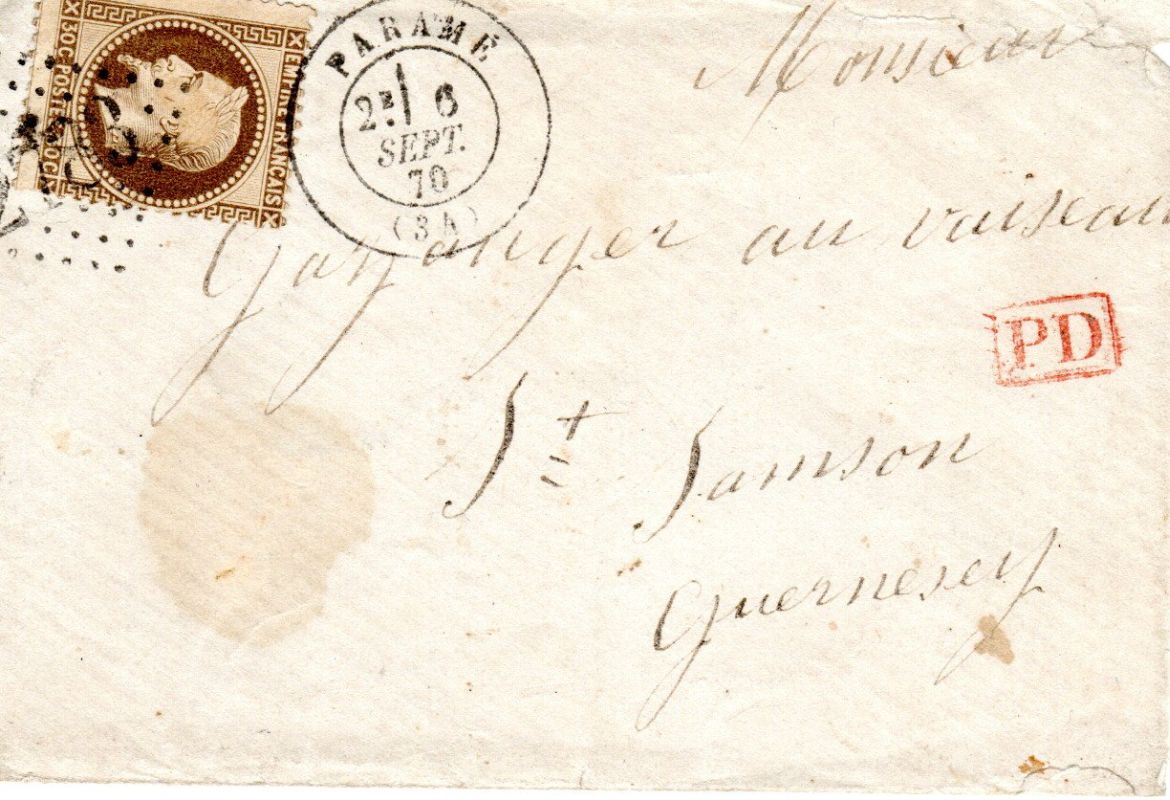 EMPIRE FRANÇAIS
30C POSTES 30C
PARAMÉ
2E 6
SEPT.
70
(34)
Monsieur
au vaiseau
PD
St Samson
Guernesey